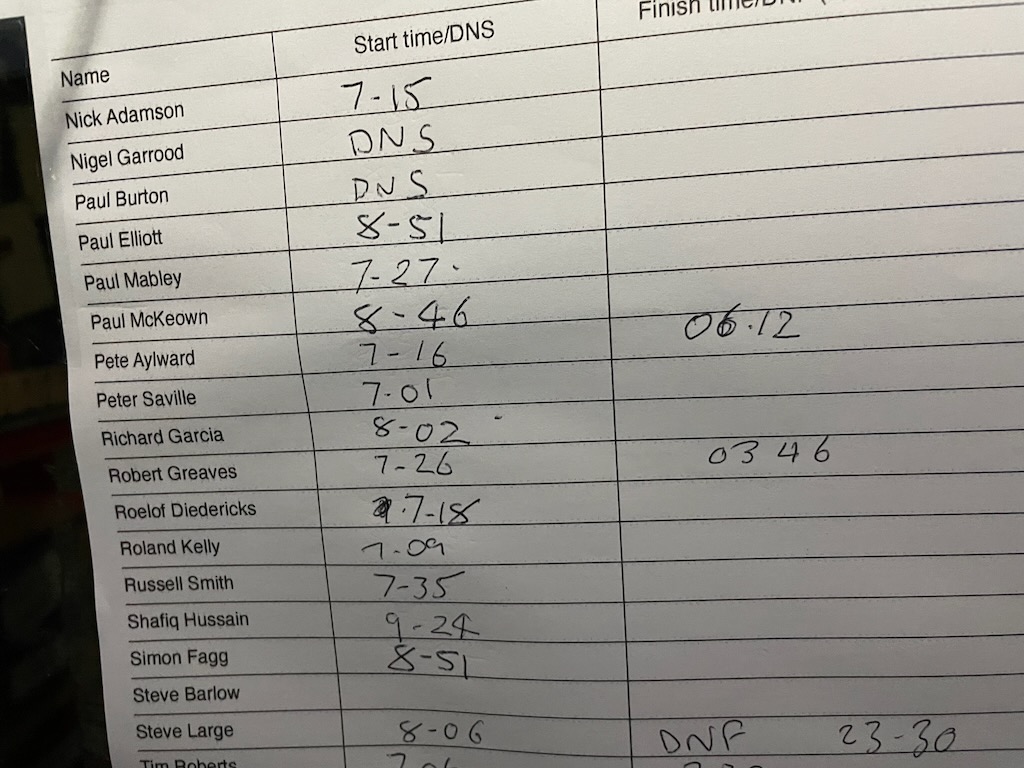 Name Start time/DNS Finish time/DNF (
Nick Adamson 7-15
Nigel Garrood DNS
Paul Burton DNS
Paul Elliott 8-51
Paul Mabley 7-27.
Paul McKeown 8-46 06.12
Pete Aylward 7-16
Peter Saville 7-01
Richard Garcia 8-02
Robert Greaves 7-26 03 46
Roelof Diedericks 7-18
Roland Kelly 7-09
Russell Smith 7-35
Shafiq Hussain 9-24
Simon Fagg 8-51
Steve Barlow
Steve Large 8-06 DNF 23-30
Tim Roberts